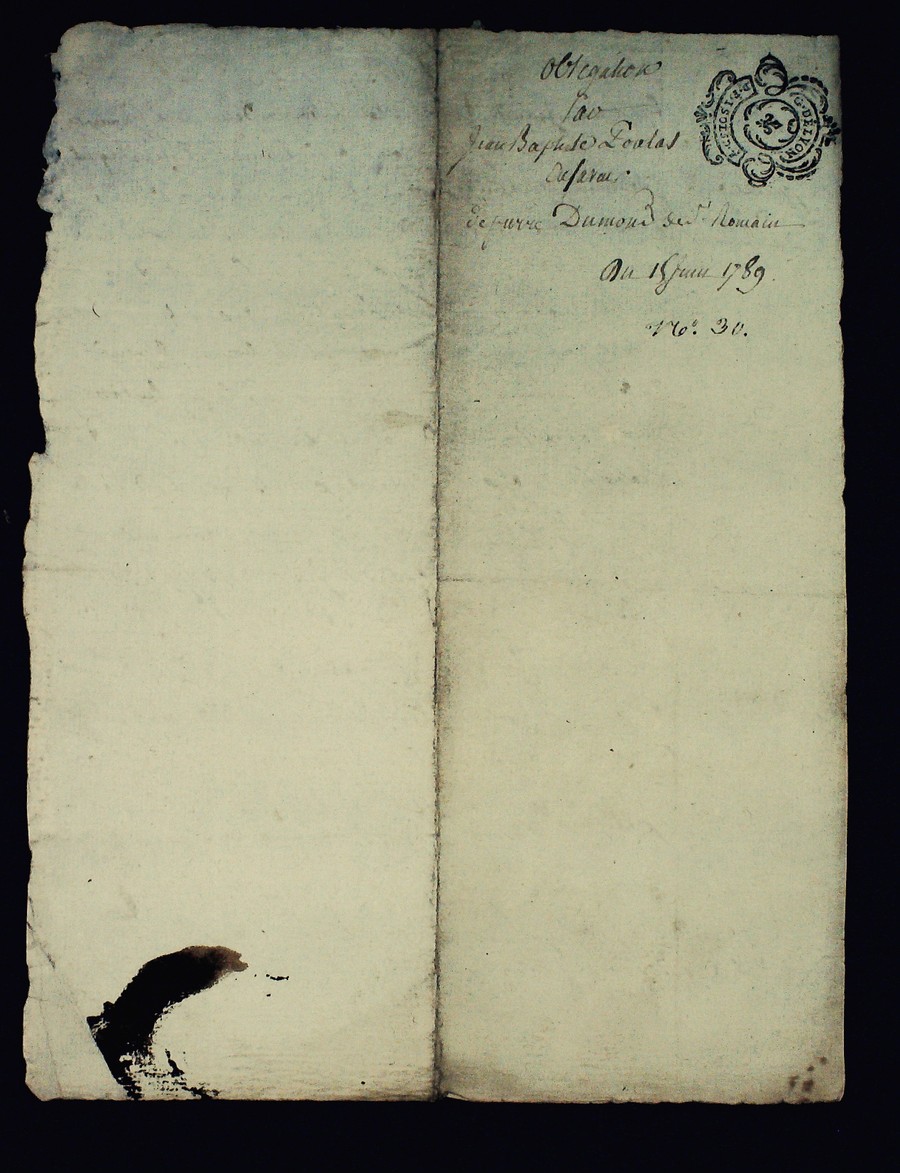 obligation
par
Jean Baptiste Poulas
En faveur
de pierre Dumond de St Romain
Du 15 juin 1789.
No. 30.
G. DE LYON